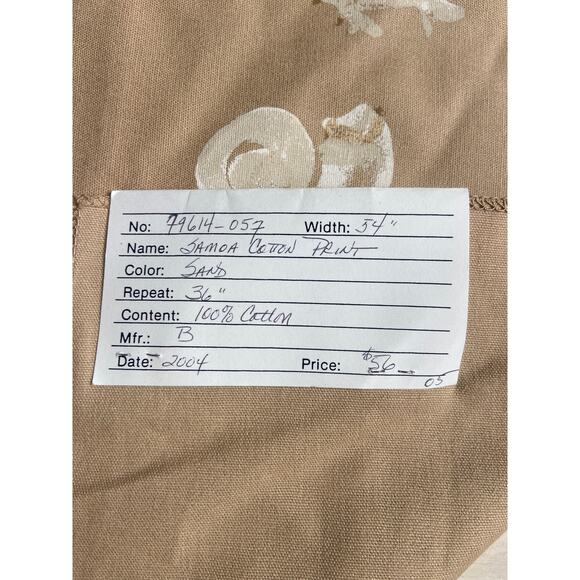 No: 79614-057 Width: 54"
Name: SAMOA COTTON PRINT
Color: SAND
Repeat: 36"
Content: 100% Cotton
Mfr.: B
Date: 2004 Price: $56-
05